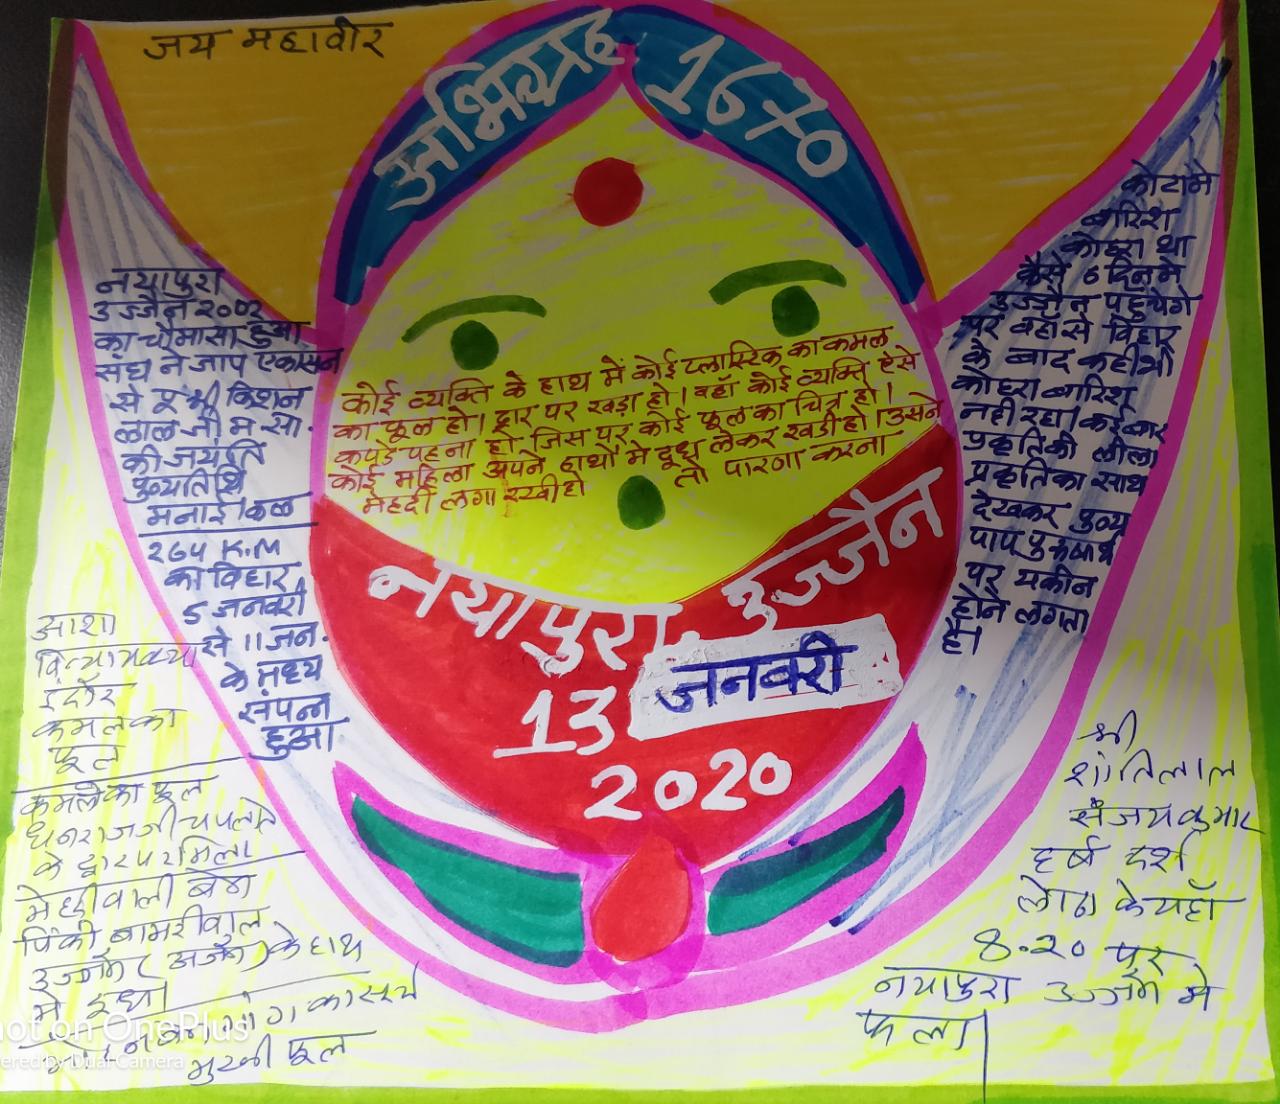 जय महावीर
अभिग्रह 1670
नयापुरा
उज्जैन २००२
का चौमासा हुआ
संघ ने जाप एकासन
से पू श्री किशन
लाल जी म सा.
की जयंति
पुण्यतिथि
मनाई कल
२६५ K.M
का विहार
5 जनवरी
से 11 जन.
के मध्य
संपन्न
हुआ
कोई व्यक्ति के हाथ में कोई प्लास्टिक का कमल
का फूल हो। द्वार पर खड़ा हो। वहाँ कोई व्यक्ति ऐसे
कपडे पहना हो जिस पर कोई फूल का चित्र हो।
कोई महिला अपने हाथों में दूध लेकर खडी हो। उसने
मेहदी लगा रखी हो तो पारणा करना
नयापुरा, उज्जैन
13 जनवरी
2020
कोटा मे
बारिश
कोहरा था
कैसे 6 दिन मे
उज्जैन पहुचेंगे
पर वहाँ से विहार
के बाद कहीं भी
कोहरा बारिश
नही रहा। कई बार
प्रकृति की लीला
प्रकृति का साथ
देखकर पुण्य
पाप पुरुषार्थ
पर यकीन
होने लगता
है।
आशा
इंदौर
कमल का
फूल
कमल का फूल
धनराज जी
के द्वार पर मिला
मेहदी वाली
पिंकी
उज्जैन के हाथ
मे दूध।
फूल
श्री
शांतिलाल
संजय कुमार
हर्ष दर्श
लोढा के यहाँ
8.20 पर
नयापुरा उज्जैन मे
फला।
Shot on OnePlus
Powered by Dual Camera